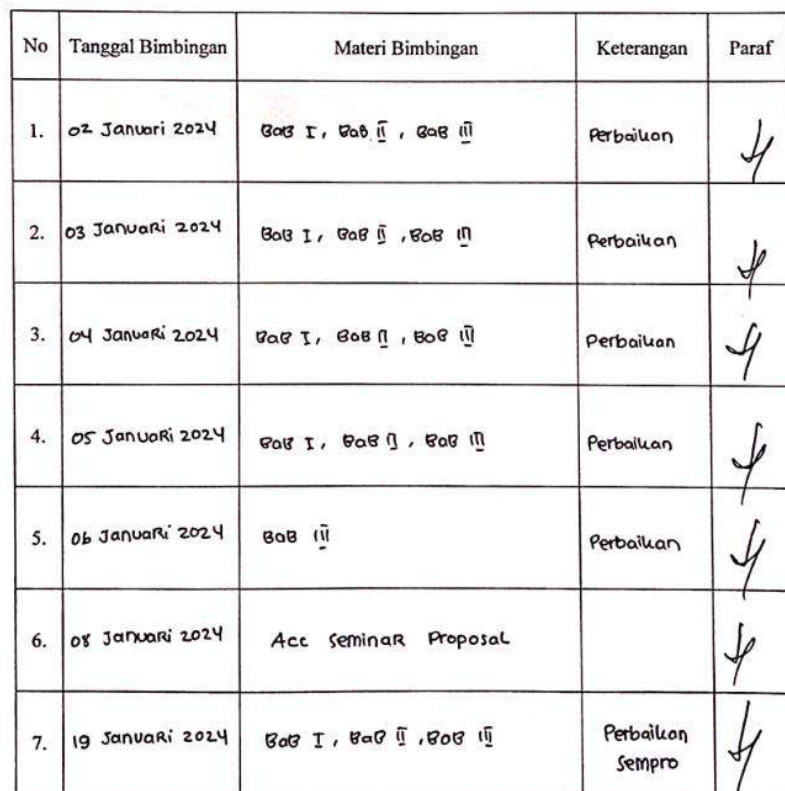 No Tanggal Bimbingan Materi Bimbingan Keterangan Paraf
1. 02 Januari 2024 BAB I, BAB II, BAB III Perbaikan
2. 03 Januari 2024 BAB I, BAB II, BAB III Perbaikan
3. 04 Januari 2024 BAB I, BAB II, BAB III Perbaikan
4. 05 Januari 2024 BAB I, BAB II, BAB III Perbaikan
5. 06 Januari 2024 BAB III Perbaikan
6. 08 Januari 2024 Acc Seminar Proposal
7. 19 Januari 2024 BAB I, BAB II, BAB III Perbaikan
Sempro